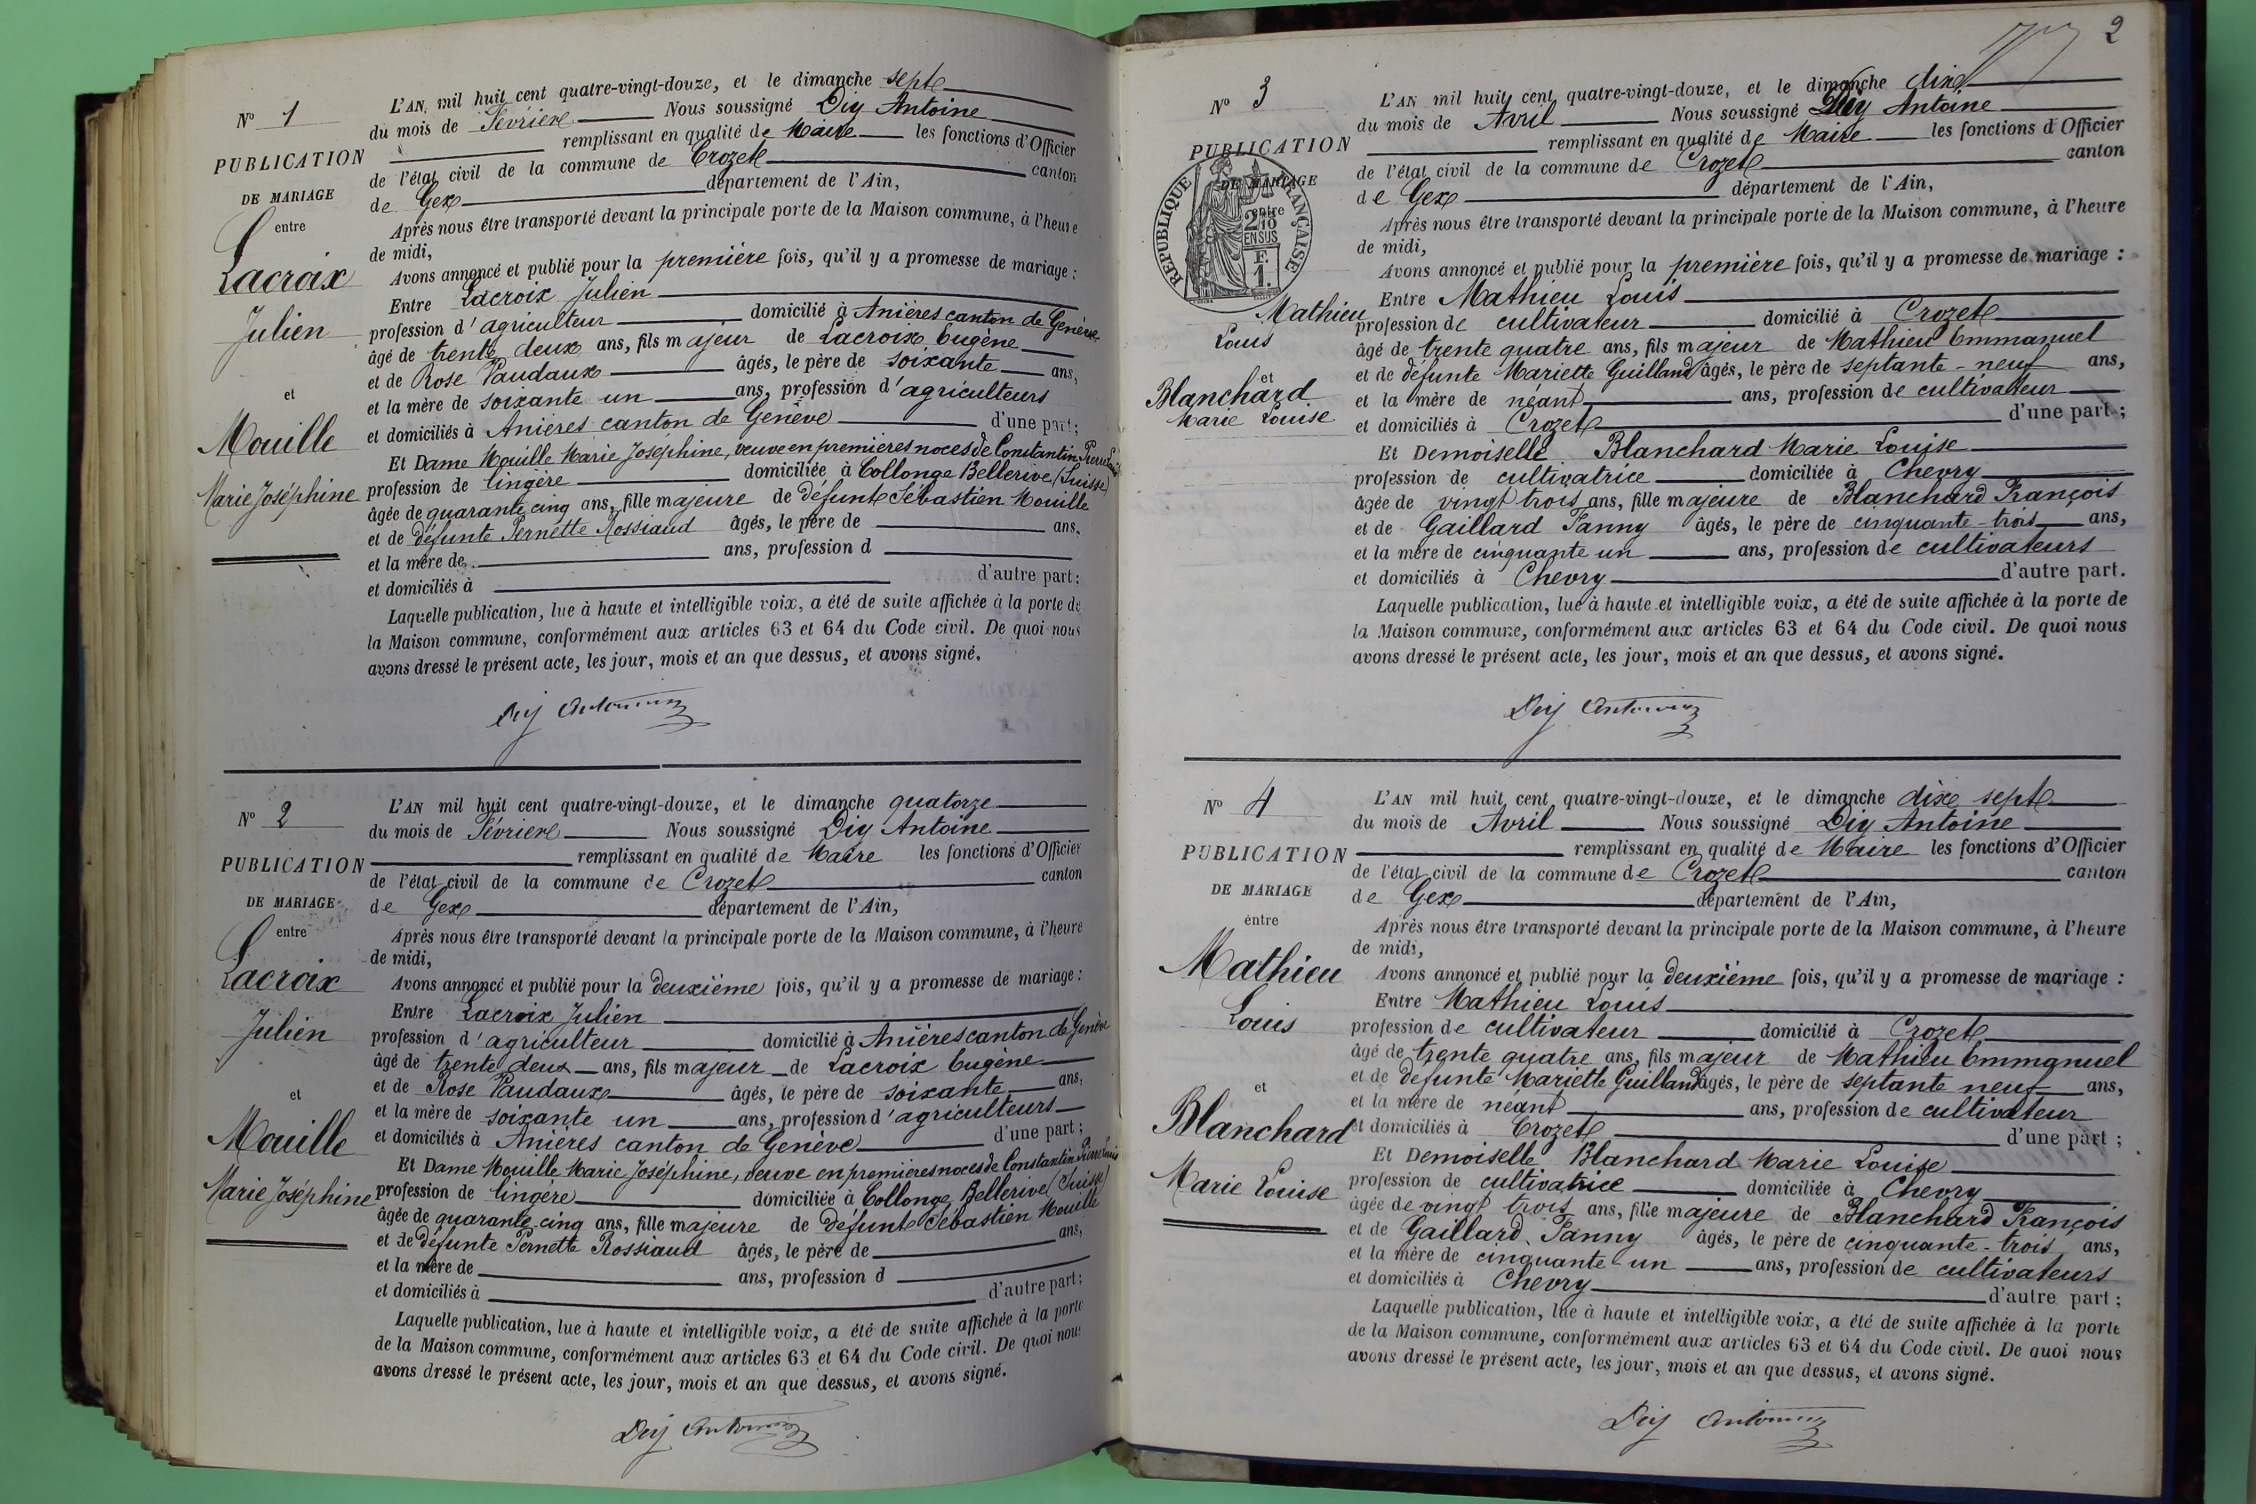 N° 1
PUBLICATION
DE MARIAGE
entre
Lacroix
Julien
et
Mouille
Marie Joséphine
L'AN mil huit cent quatre-vingt-douze, et le dimanche sept
du mois de Février Nous soussigné Diy Antoine
remplissant en qualité de Maire les fonctions d'Officier
de l'état civil de la commune de Crozet canton
de Gex département de l'Ain,
Après nous être transporté devant la principale porte de la Maison commune, à l'heure
de midi,
Avons annoncé et publié pour la première fois, qu'il y a promesse de mariage :
Entre Lacroix Julien
profession d'agriculteur domicilié à Anières canton de Genève
âgé de trente deux ans, fils majeur de Lacroix Eugène
et de Rose Vaudaux âgés, le père de soixante ans,
et la mère de soixante un ans, profession d'agriculteurs
et domiciliés à Anières canton de Genève d'une part ;
Et Dame Mouille Marie Joséphine, veuve en premières noces de Constantin Pierre Louis
profession de lingère domiciliée à Collonge Bellerive (Suisse)
âgée de quarante cinq ans, fille majeure de défunt Sébastien Mouille
et de défunte Pernette Rossiaud âgés, le père de ans,
et la mère de ans, profession d
et domiciliés à d'autre part ;
Laquelle publication, lue à haute et intelligible voix, a été de suite affichée à la porte de
la Maison commune, conformément aux articles 63 et 64 du Code civil. De quoi nous
avons dressé le présent acte, les jour, mois et an que dessus, et avons signé.
Diy Antoine
N° 2
PUBLICATION
DE MARIAGE
entre
Lacroix
Julien
et
Mouille
Marie Joséphine
L'AN mil huit cent quatre-vingt-douze, et le dimanche quatorze
du mois de Février Nous soussigné Diy Antoine
remplissant en qualité de Maire les fonctions d'Officier
de l'état civil de la commune de Crozet canton
de Gex département de l'Ain,
Après nous être transporté devant la principale porte de la Maison commune, à l'heure
de midi,
Avons annoncé et publié pour la deuxième fois, qu'il y a promesse de mariage :
Entre Lacroix Julien
profession d'agriculteur domicilié à Anières canton de Genève
âgé de trente deux ans, fils majeur de Lacroix Eugène
et de Rose Vaudaux âgés, le père de soixante ans,
et la mère de soixante un ans, profession d'agriculteurs
et domiciliés à Anières canton de Genève d'une part ;
Et Dame Mouille Marie Joséphine, veuve en premières noces de Constantin Pierre Louis
profession de lingère domiciliée à Collonge Bellerive (Suisse)
âgée de quarante-cinq ans, fille majeure de défunt Sébastien Mouille
et de défunte Pernette Rossiaud âgés, le père de ans,
et la mère de ans, profession d
et domiciliés à d'autre part ;
Laquelle publication, lue à haute et intelligible voix, a été de suite affichée à la porte
de la Maison commune, conformément aux articles 63 et 64 du Code civil. De quoi nous
avons dressé le présent acte, les jour, mois et an que dessus, et avons signé.
Diy Antoine
2
N° 3
PUBLICATION
DE MARIAGE
entre
RÉPUBLIQUE FRANÇAISE
2/10
EN SUS
F.
1.
Mathieu
Louis
et
Blanchard
Marie Louise
L'AN mil huit cent quatre-vingt-douze, et le dimanche dix
du mois de Avril Nous soussigné Diy Antoine
remplissant en qualité de Maire les fonctions d'Officier
de l'état civil de la commune de Crozet canton
de Gex département de l'Ain,
Après nous être transporté devant la principale porte de la Maison commune, à l'heure
de midi,
Avons annoncé et publié pour la première fois, qu'il y a promesse de mariage :
Entre Mathieu Louis
profession de cultivateur domicilié à Crozet
âgé de trente quatre ans, fils majeur de Mathieu Emmanuel
et de défunte Mariette Guilland âgés, le père de septante-neuf ans,
et la mère de néant ans, profession de cultivateur
et domiciliés à Crozet d'une part ;
Et Demoiselle Blanchard Marie Louise
profession de cultivatrice domiciliée à Chevry
âgée de vingt trois ans, fille majeure de Blanchard François
et de Gaillard Fanny âgés, le père de cinquante-trois ans,
et la mère de cinquante un ans, profession de cultivateurs
et domiciliés à Chevry d'autre part.
Laquelle publication, lue à haute et intelligible voix, a été de suite affichée à la porte de
la Maison commune, conformément aux articles 63 et 64 du Code civil. De quoi nous
avons dressé le présent acte, les jour, mois et an que dessus, et avons signé.
Diy Antoine
N° 4
PUBLICATION
DE MARIAGE
entre
Mathieu
Louis
et
Blanchard
Marie Louise
L'AN mil huit cent quatre-vingt-douze, et le dimanche dix sept
du mois de Avril Nous soussigné Diy Antoine
remplissant en qualité de Maire les fonctions d'Officier
de l'état civil de la commune de Crozet canton
de Gex département de l'Ain,
Après nous être transporté devant la principale porte de la Maison commune, à l'heure
de midi,
Avons annoncé et publié pour la deuxième fois, qu'il y a promesse de mariage :
Entre Mathieu Louis
profession de cultivateur domicilié à Crozet
âgé de trente quatre ans, fils majeur de Mathieu Emmanuel
et de défunte Mariette Guilland âgés, le père de septante neuf ans,
et la mère de néant ans, profession de cultivateur
et domiciliés à Crozet d'une part ;
Et Demoiselle Blanchard Marie Louise
profession de cultivatrice domiciliée à Chevry
âgée de vingt trois ans, fille majeure de Blanchard François
et de Gaillard Fanny âgés, le père de cinquante-trois ans,
et la mère de cinquante-un ans, profession de cultivateurs
et domiciliés à Chevry d'autre part ;
Laquelle publication, lue à haute et intelligible voix, a été de suite affichée à la porte
de la Maison commune, conformément aux articles 63 et 64 du Code civil. De quoi nous
avons dressé le présent acte, les jour, mois et an que dessus, et avons signé.
Diy Antoine